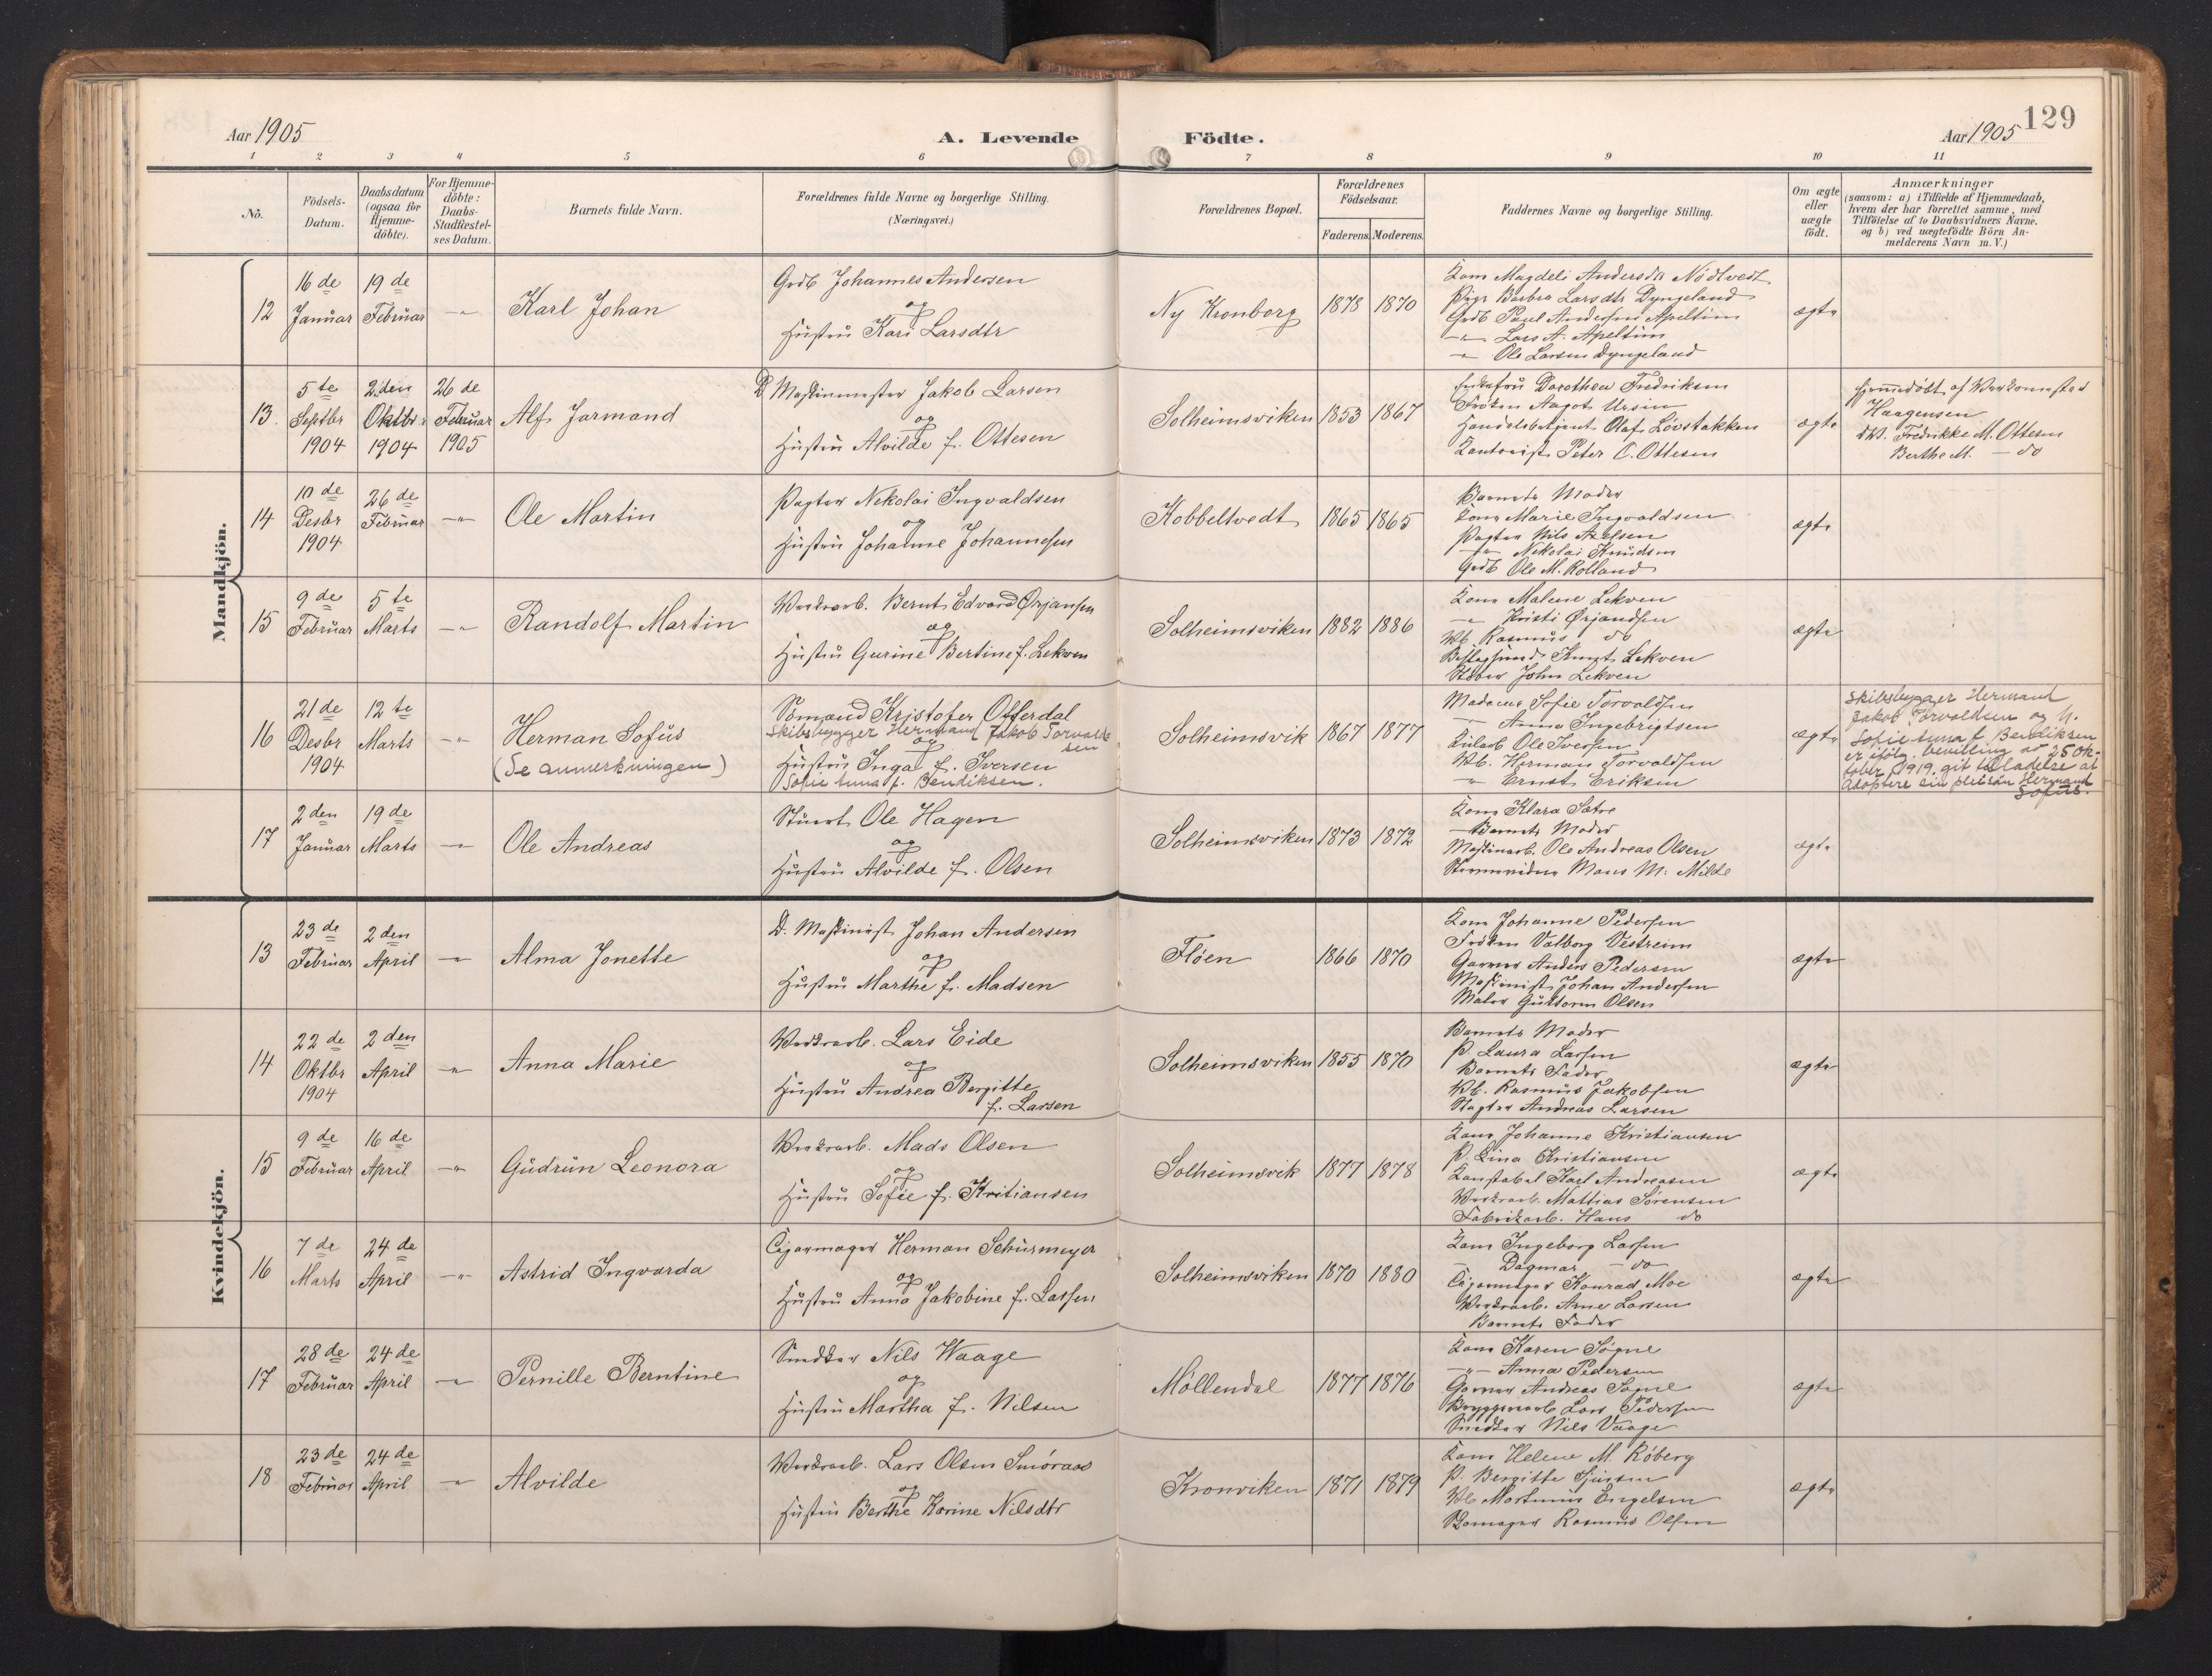 129
Aar 1905
A. Levende Födte.
Aar 1905
1 2 3 4 5 6 7 8 9 10 11
Nô.
Födsels-
Datum.
Daabsdatum
(ogsaa for
Hjemme-
döbte).
For Hjemme-
döbte:
Daabs-
Stadfæstel-
ses Datum.
Barnets fulde Navn.
Forældrenes fulde Navne og borgerlige Stilling.
(Næringsvei.)
Forældrenes Bopæl.
Forældrenes
Födselsaar.
Faderens. Moderens.
Faddernes Navne og borgerlige Stilling.
Om ægte
eller
uægte
födt.
Anmærkninger
(saasom: a) i Tilfælde af Hjemmedaab,
hvem der har forrettet samme, med
Tilföielse af to Daabsvidners Navne.
og b) ved uægtefödte Börn An-
melderens Navn m. V.)
Mandkjön.
12
16 de
Januar
19 de
Februar
-"-
Karl Johan
Grdb Johannes Andersen
og
Hustru Kari Larsdtr
Ny Kronborg
1878
1870
Kone Magdeli Andersdr Nödtvedt
Pige Barbra Larsdtr Dyngeland
Grdb Paul Andersen Apeltun
-"- Lars A. Apeltun
-"- Ole Larsen Dyngeland
ægte
13.
5 te
Septbr
1904
2 den
Oktbr.
1904
26 de
Februar
1905
Alf Jarmand
D Maskinmester Jakob Larsen
og
Hustru Alvilde f. Ottesen
Solheimsviken
1853
1867
Enkefru Dorothea Fredriksen
Fröken Aagot Ursin
Handelsbetjent Olaf Lövstakken
Kontorist Peter C. Ottesen
ægte
Hjemmedöbt af Werkmester
Haagensen
DV. Fredrikke M. Ottesen
Berthe M. - do
14
10 de
Desbr
1904
26 de
Februar
-"-
Ole Martin
Pagter Nekolai Ingvaldsen
og
Hustru Johanne Johannesen
Kobbeltvedt
1865
1865
Barnets Moder
Kone Marie Ingvaldsen
Pagter Nils Axelsen
-"- Nekolai Knudsen
Grdb Ole M. Rolland
ægte
15
9 de
Februar
5 te
Marts
-"-
Randolf Martin
Werksarb. Bernt Edvard Ørjansen
og
Hustru Gurine Bertine f. Lekven
Solheimsviken
1882
1886
Kone Malene Lekven
-"- Kristi Ørjandsen
Wb. Rasmus do
Knut Lekven
Støber John Lekven
ægte
16
21 de
Desbr
1904
12 te
Marts
-"-
Herman Sofus
(Se anmerkningen)
Sömand Kristofer Offerdal
Skibsbygger Hermand Jakob Torvald-
sen
og
Hustru Inga f. Iversen
Sofie Anna f. Bendiksen.
Solheimsvik
1867
1877
Madame Sofie Torvaldsen
-"- Anna Ingebrigtsen
Ole Iversen
Wb. Herman Torvaldsen
-"- Ernst Eriksen
ægte
Skibsbygger Hermand
Jakob Torvaldsen og h.
Sofie Anna f Bendiksen
er ifölg. bevilling av 25 ok-
tober 1919 git tilladelse at
adoptere sin pleiesön Hermand
Sofus.
17
2 den
Januar
19 de
Marts
-"-
Ole Andreas
Stuert Ole Hagen
og
Hustru Alvilde f. Olsen
Solheimsviken
1873
1872
Kone Klara Sætre
Barnets Moder
Maskinarb. Ole Andreas Olsen
Mons M. Milde
ægte
Kvindekjön.
13
23 de
Februar
2 den
April
-"-
Alma Jonette
D. Maskinist Johan Andersen
og
Hustru Marthe f. Madsen
Flöen
1866
1870
Kone Johanne Pedersen
Fröken Valborg Vestreim
Garver Anders Pedersen
Maskinist Johan Andersen
Maler Guttorm Olsen
ægte
14
22 de
Oktbr
1904
2 den
April
-"-
Anna Marie
Werksarb. Lars Eide
og
Hustru Andrea Bergitte
f. Larsen
Solheimsviken
1855
1870
Barnets Moder
P. Laura Larsen
Barnets Fader
Wb. Rasmus Jakobsen
Slagter Andreas Larsen
ægte
15
9 de
Februar
16 de
April
-"-
Gudrun Leonora
Werksarb. Mads Olsen
og
Hustru Sofie f. Kritiansen
Solheimsvik
1877
1878
Kone Johanne Kristiansen
P. Lina Kristiansen
Konstabel Karl Andreasen
Werksarb. Mathias Sörensen
Fabrikarb. Hans do
ægte
16
7 de
Marts
24 de
April
-"-
Astrid Ingvarda
Cigarmager Herman Schürmeyer
og
Hustru Anna Jakobine f. Larsen
Solheimsviken
1870
1880
Kone Ingeborg Larsen
Dagmar - do -
Cigarmager Konrad Moe
Werksarb. Arne Larsen
Barnets Fader
ægte
17
28 de
Februar
24 de
April
-"-
Pernille Berntine
Snedker Nils Waage
og
Hustru Martha f. Nilsen
Möllendal
1877
1876
Kone Karen Sögne
-"- Anna Pedersen
Garver Andreas Sögne
Bryggeriarb Lars Pedersen
Snedker Nils Vaage
ægte
18
23 de
Februar
24 de
April
-"-
Alvilde
Werksarb. Lars Olsen Smöraas
og
Hustru Berthe Karine Nilsdtr
Kronviken
1871
1879
Kone Helene M. Röberg
P. Bergitte Sjursen
Wb Martinus Engelsen
Skomager Rasmus Olsen
ægte